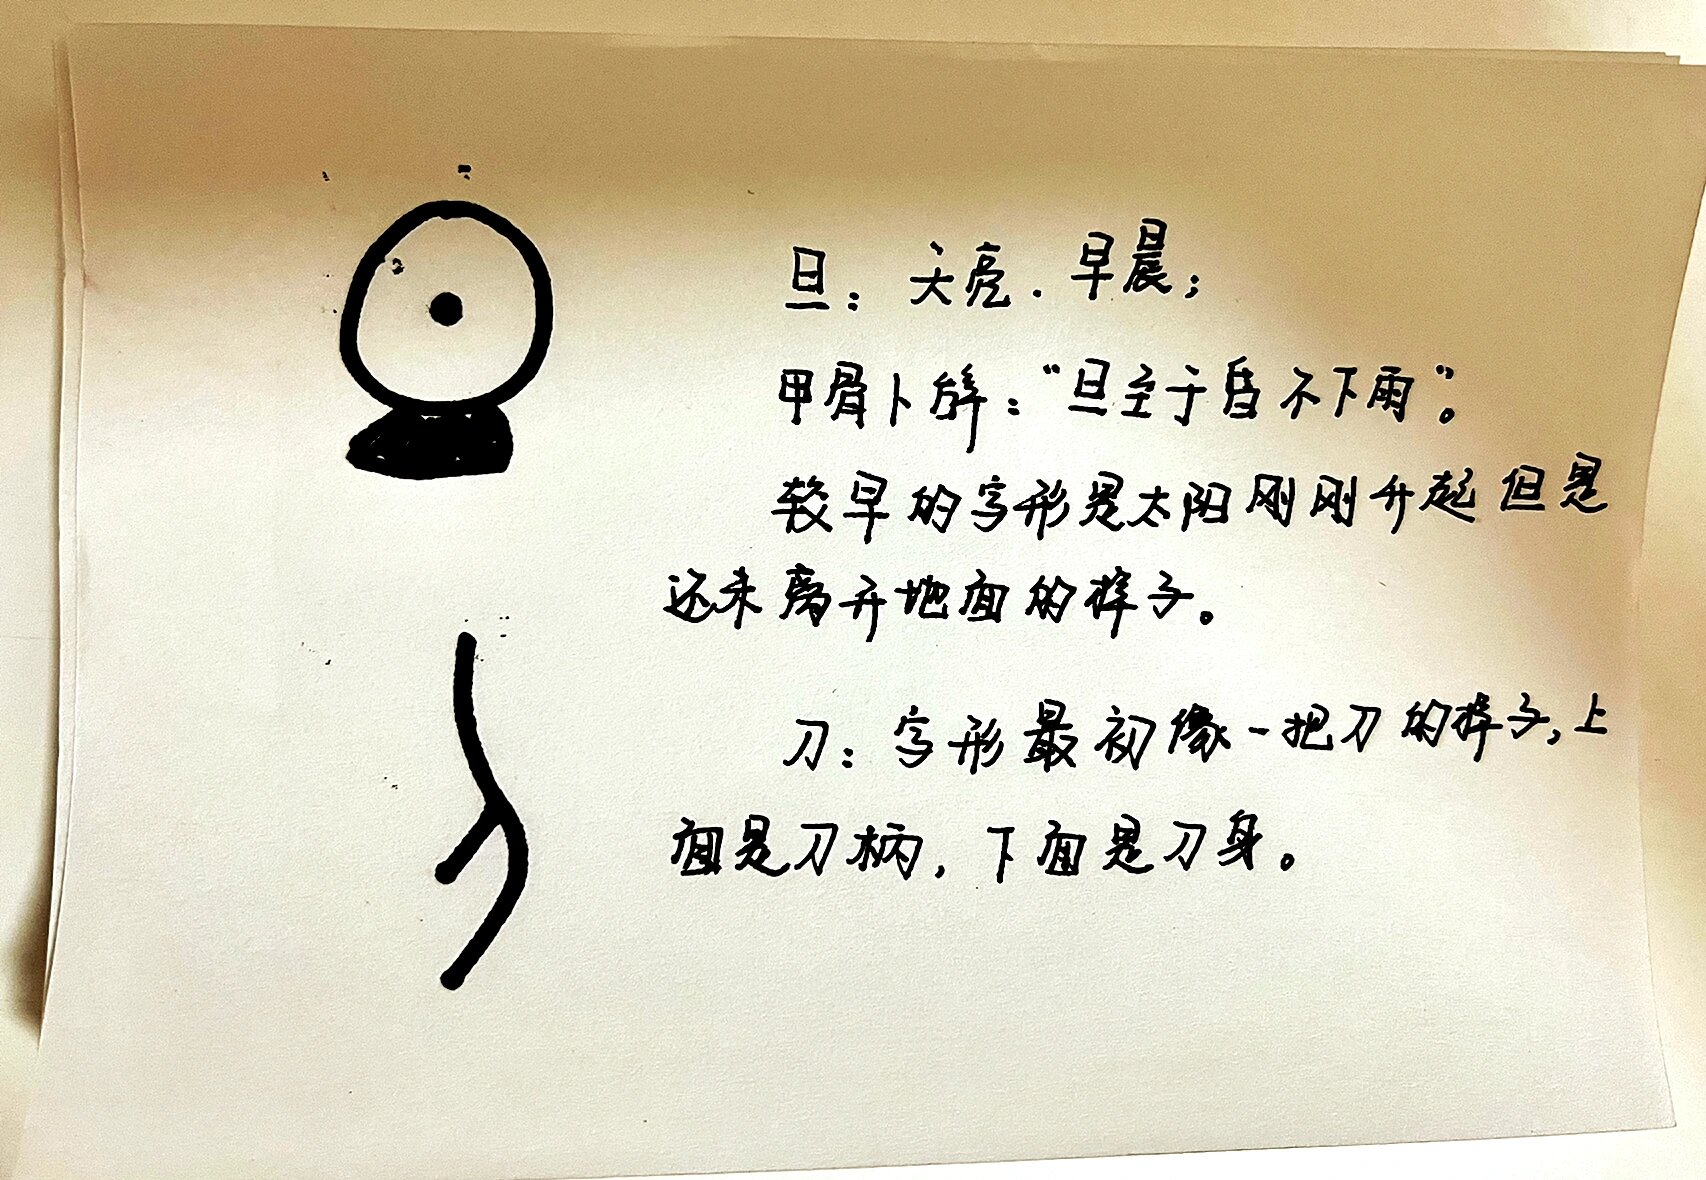 旦：天亮.早晨；
甲骨卜辞："旦至于昏不下雨"。
较早的字形是太阳刚刚升起但是
还未离开地面的样子。
刀：字形最初像一把刀的样子,上
面是刀柄,下面是刀身。